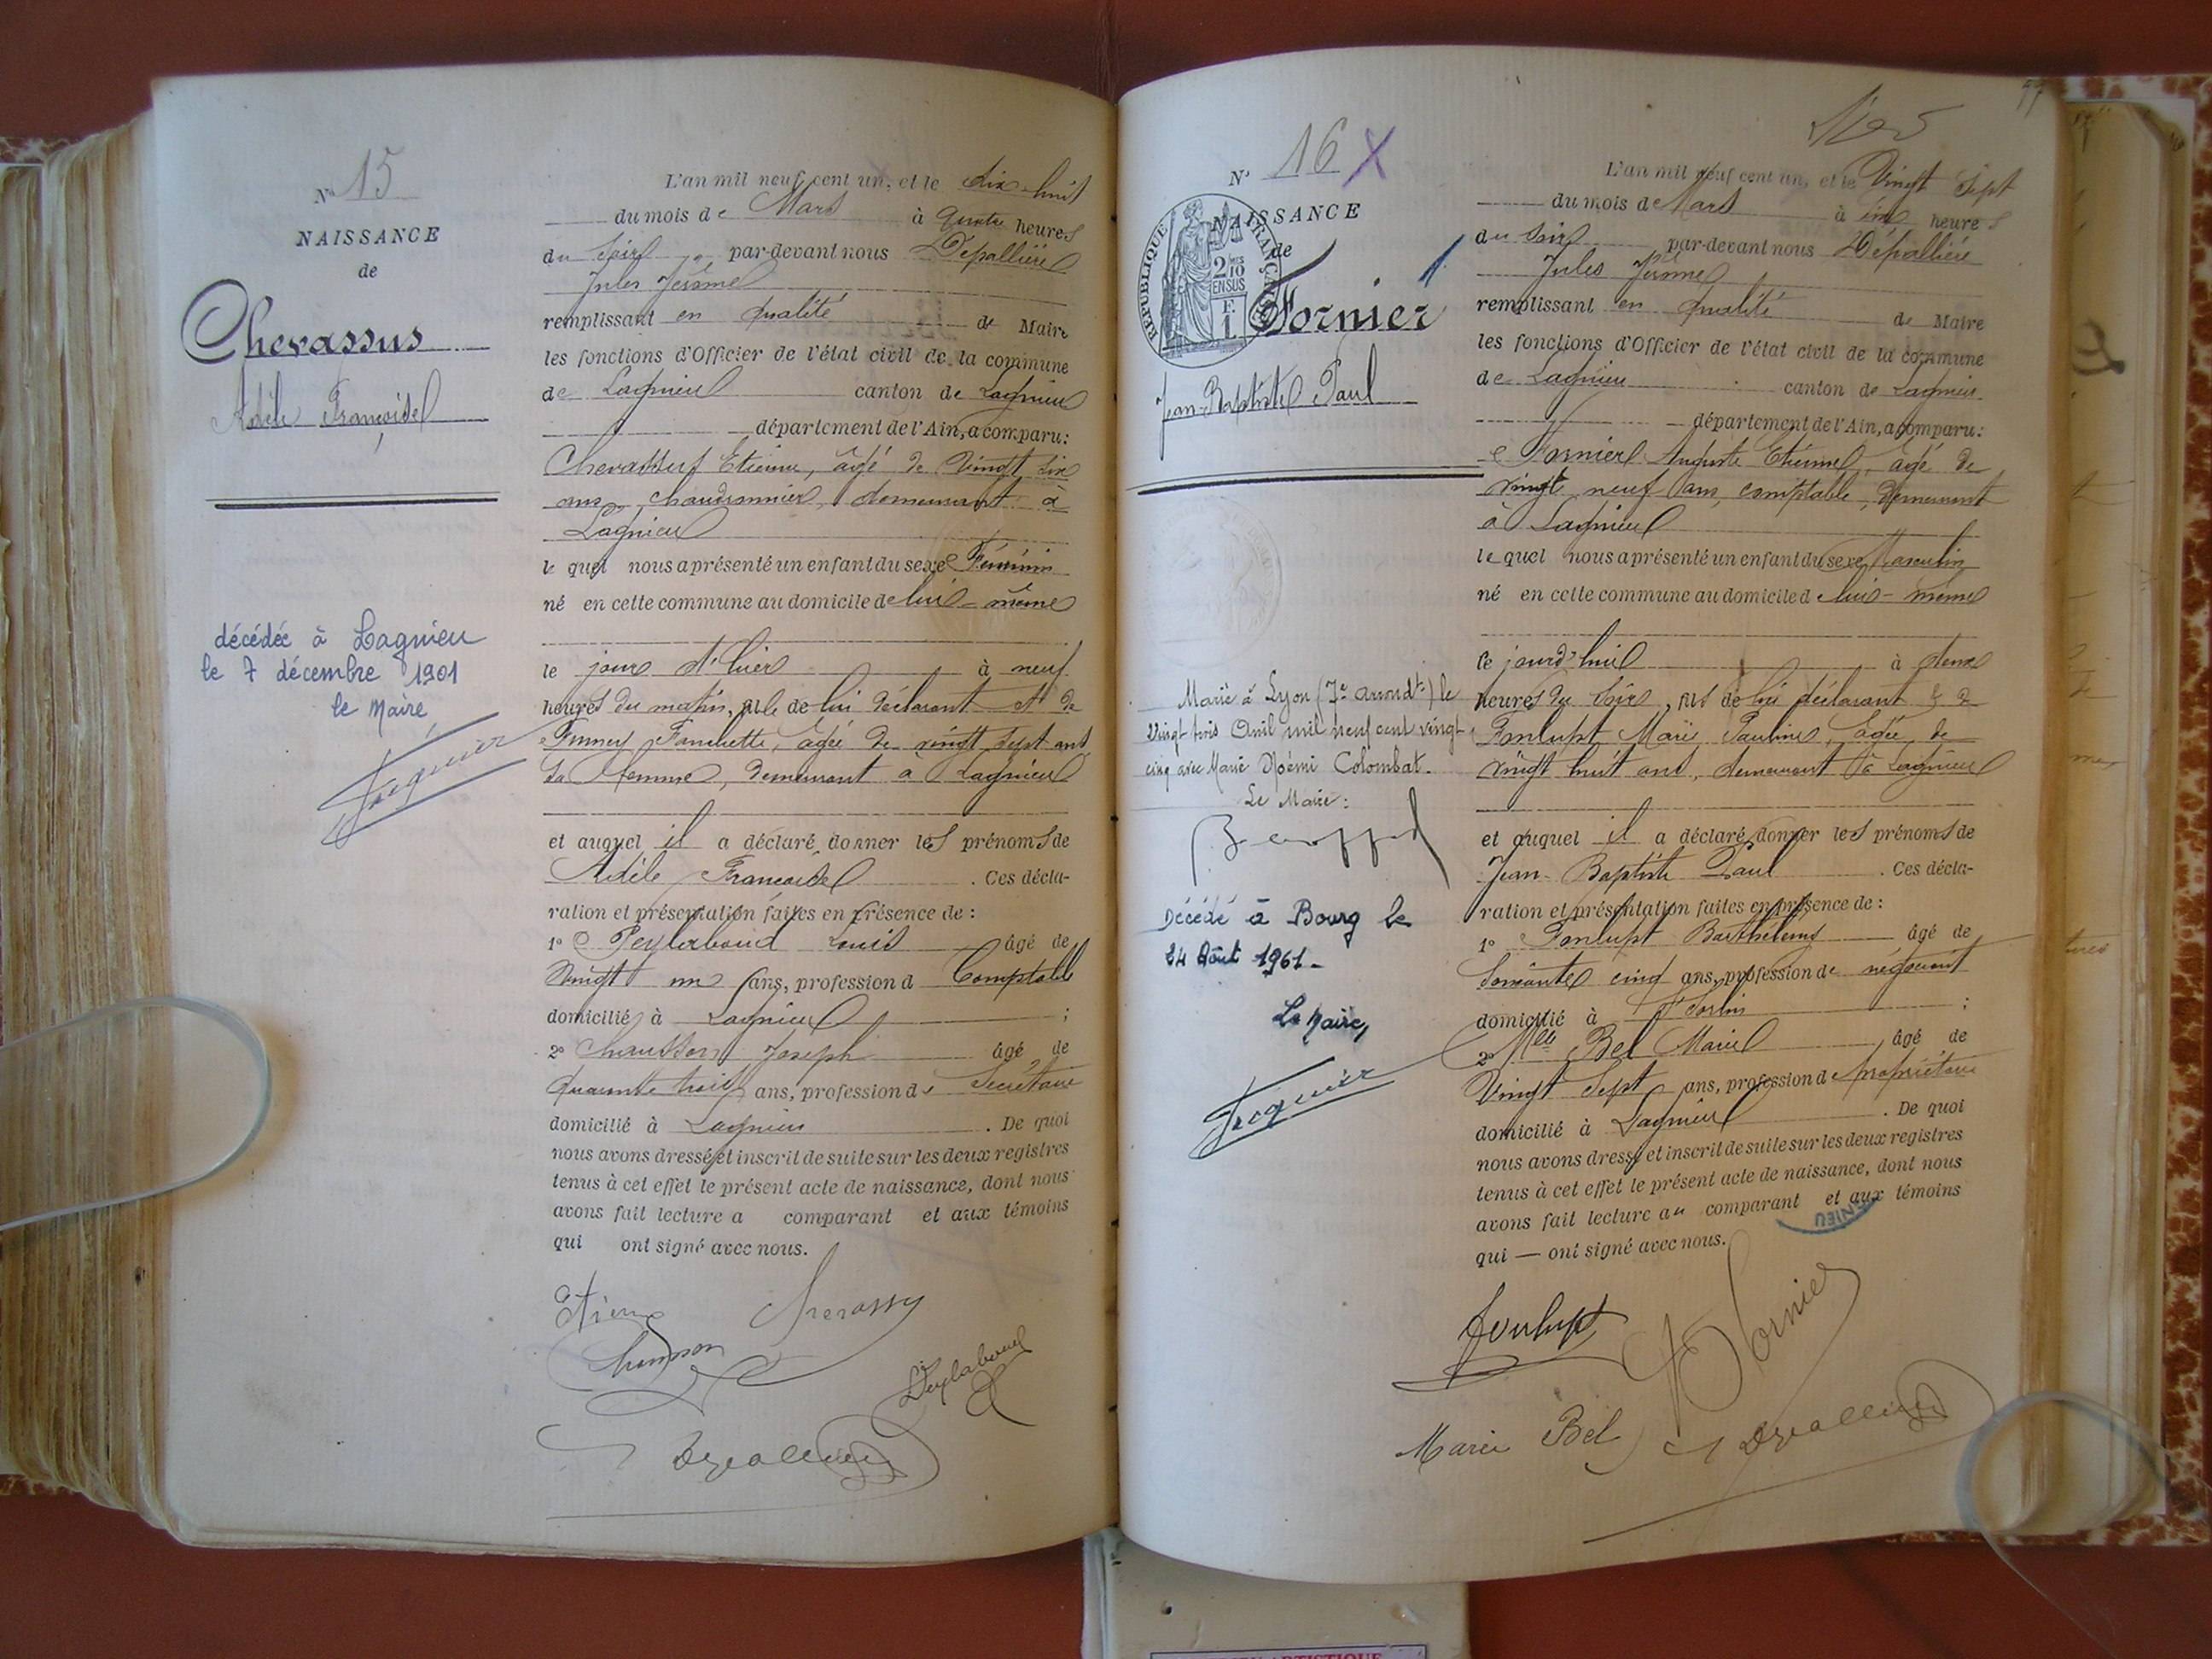 N° 15
NAISSANCE
de
Chevassus
Adèle Françoise
décédée à Lagnieu
le 7 décembre 1901
le Maire
L'an mil neuf cent un, et le dix-huit
du mois de Mars à quatre heures
du soir par-devant nous Dépallière
Jules Jérôme
remplissant en qualité de Maire
les fonctions d'Officier de l'état civil de la commune
de Lagnieu canton de Lagnieu
département de l'Ain, a comparu:
Chevassus Etienne, âgé de vingt six
ans, chaudronnier, demeurant à
Lagnieu
le quel nous a présenté un enfant du sexe Féminin
né en cette commune au domicile de lui-même
le jour d'hier à neuf
heures du matin, fille de lui déclarant et de
Fanchette, âgée de vingt sept ans,
sa femme, demeurant à Lagnieu
et auquel il a déclaré donner les prénoms de
Adèle Françoise. Ces décla-
ration et présentation faites en présence de:
1° Peylaboud Louis âgé de
Vingt un ans, profession d Comptable
domicilié à Lagnieu;
2° Chausson Joseph âgé de
quarante trois ans, profession de Secrétaire
domicilié à Lagnieu. De quoi
nous avons dressé et inscrit de suite sur les deux registres
tenus à cet effet le présent acte de naissance, dont nous
avons fait lecture a comparant et aux témoins
qui ont signé avec nous.
Etienne Chevassus
Chausson
Peylaboud
Depallière
N° 16 X
NAISSANCE
de
REPUBLIQUE FRANÇAISE
2/10 EN SUS
Fornier
Jean-Baptiste Paul
Marié à Lyon (7e arrondt) le
vingt trois Avril mil neuf cent vingt
cinq avec Marie Noémi Colombat.
Le Maire:
Décédé à Bourg le
24 Août 1961-
Le Maire,
L'an mil neuf cent un, et le Vingt Sept
du mois de Mars à six heures
du soir par-devant nous Dépallière
Jules Jérôme
remplissant en qualité de Maire
les fonctions d'Officier de l'état civil de la commune
de Lagnieu canton de Lagnieu
département de l'Ain, a comparu:
Fornier Auguste Etienne, âgé de
vingt neuf ans, comptable, demeurant
à Lagnieu
le quel nous a présenté un enfant du sexe Masculin
né en cette commune au domicile d lui-même
ce jourd'hui à deux
heures du soir, fils de lui déclarant & de
Fonlupt Marie Pauline, âgée de
vingt huit ans, demeurant à Lagnieu
et auquel il a déclaré donner les prénoms de
Jean-Baptiste Paul. Ces décla-
ration et présentation faites en présence de:
1° Fonlupt Barthélemy âgé de
soixante cinq ans, profession de négociant
domicilié à St Sorlin;
2° Mlle Bel Marie âgé de
Vingt Sept ans, profession d propriétaire
domicilié à Lagnieu. De quoi
nous avons dressé et inscrit de suite sur les deux registres
tenus à cet effet le présent acte de naissance, dont nous
avons fait lecture au comparant et aux témoins
qui — ont signé avec nous.
Fonlupt
Fornier
Marie Bel
Depallière